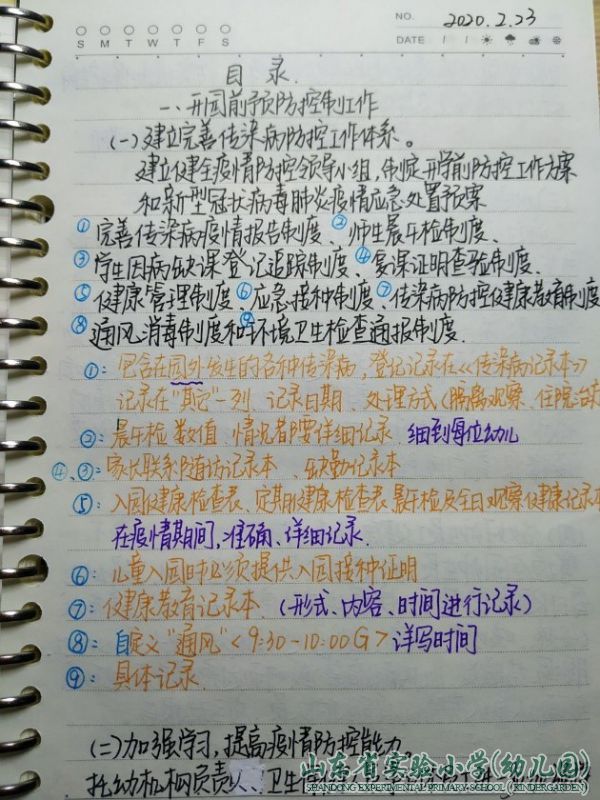 NO. 2020.2.23
S M T W T F S
DATE / /
目 录.
一、开园前预防控制工作
(一)建立完善传染病防控工作体系。
建立健全疫情防控领导小组,制定开学前防控工作方案
和新型冠状病毒肺炎疫情应急处置预案
①完善传染病疫情报告制度、②师生晨午检制度、
③学生因病缺课登记追踪制度、④复课证明查验制度.
⑤健康管理制度、⑥应急接种制度、⑦传染病防控健康教育制度
⑧通风、消毒制度和⑨环境卫生检查通报制度.
①:包含在园外发生的各种传染病,登记记录在《传染病记录本》
记录在"其它"一列、记录日期、处理方式(隔离观察、住院治疗
②:晨午检数值、情况都要详细记录.细到每位幼儿
④、③:家长联系随访记录本、缺勤记录本
⑤:入园健康检查表、定期健康检查表、晨午检及全日观察健康记录本
在疫情期间,准确、详细记录.
⑥:儿童入园时必须提供入园接种证明
⑦:健康教育记录本.(形式、内容、时间进行记录)
⑧:自定义"通风"<9:30-10:00 G>详写时间
⑨:具体记录.
(二)加强学习,提高疫情防控能力。
托幼机构负责人、卫生
山东省实验小学(幼儿园)
SHANDONG EXPERIMENTAL PRIMARY SCHOOL (KINDERGARDEN)